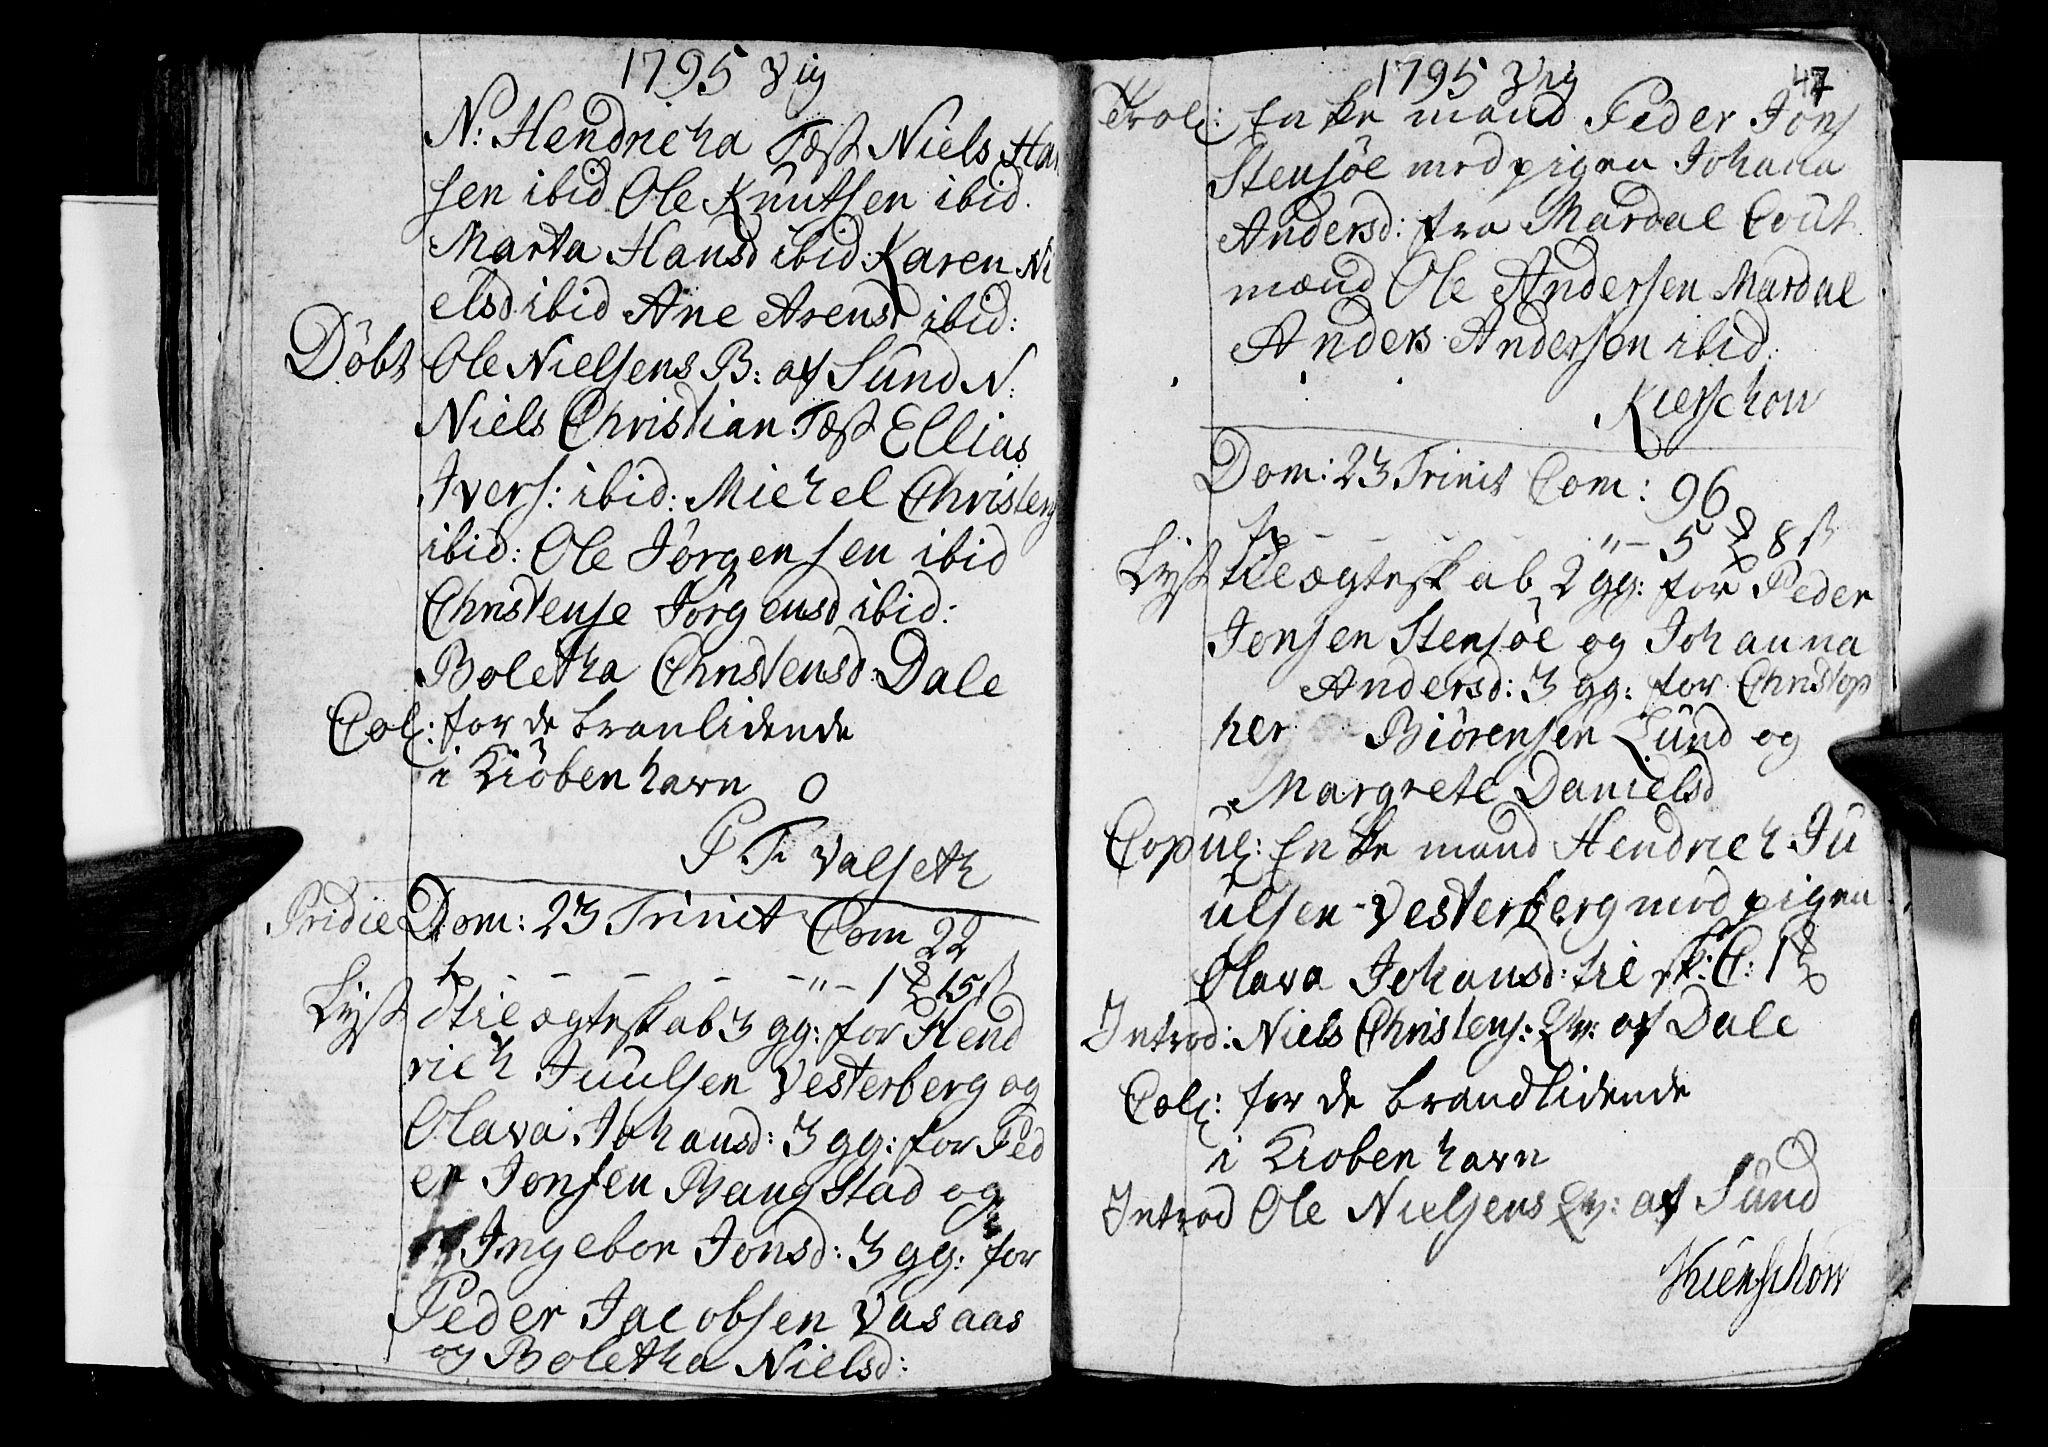 1795 Vig
N: Hendricha Test Niels Han
sen ibid Ole Knutsen ibid.
Marta Hansd ibid: Karen Ni
elsd ibid Ane Arensd ibid:
Döbt Ole Nielsens B: af Sund N:
Niels Christian. Test Ellias
Ivers: ibid: Michel Christens
ibid: Ole Jörgensen ibid
Christense Jörgensd ibid:
Boletha Christensd Dale
Col: for de branlidende
i Kiöbenhavn 0
P T Valseth
Pridie Dom: 23 Trinit Com 22
t - - - - - " - 1 15 ß
Lyst til ægteskab 3 gg: for Hend
rich Juulsen Vesterberg og
Olava Johansd: 3 gg: for Ped
er Jonsen Bangstad og
Ingebor Jonsd: 3 gg: for
Peder Jacobsen Vasaas
og Boletha Nielsd:
1795 Vig 47
Trol: Enke mand Peder Jons
Stensöe med pigen Johana
Andersd: fra Mardal Cout
mænd Ole Andersen Mardal
Anders Andersen ibid:
Kierschow
Dom: 23 Trinit Com: 96
t - - - - " - 5 8 ß
Lyst til ægteskab 2 gg: for Peder
Jonsen Stensöe og Johanna
Andersd: 3 gg: for Christop
her Biörensen Lund og
Margrete Danielsd
Copul: Enke mand Hendrich Ju
ulsen Vesterberg med pigen
Olava Johansd: til sk: C: 1
Introd: Niels Christens: Qv: af Dale
Col: for de brandlidende
i Kiobenhavn 0
Introd Ole Nielsens Qv: af Sund
Kierschow